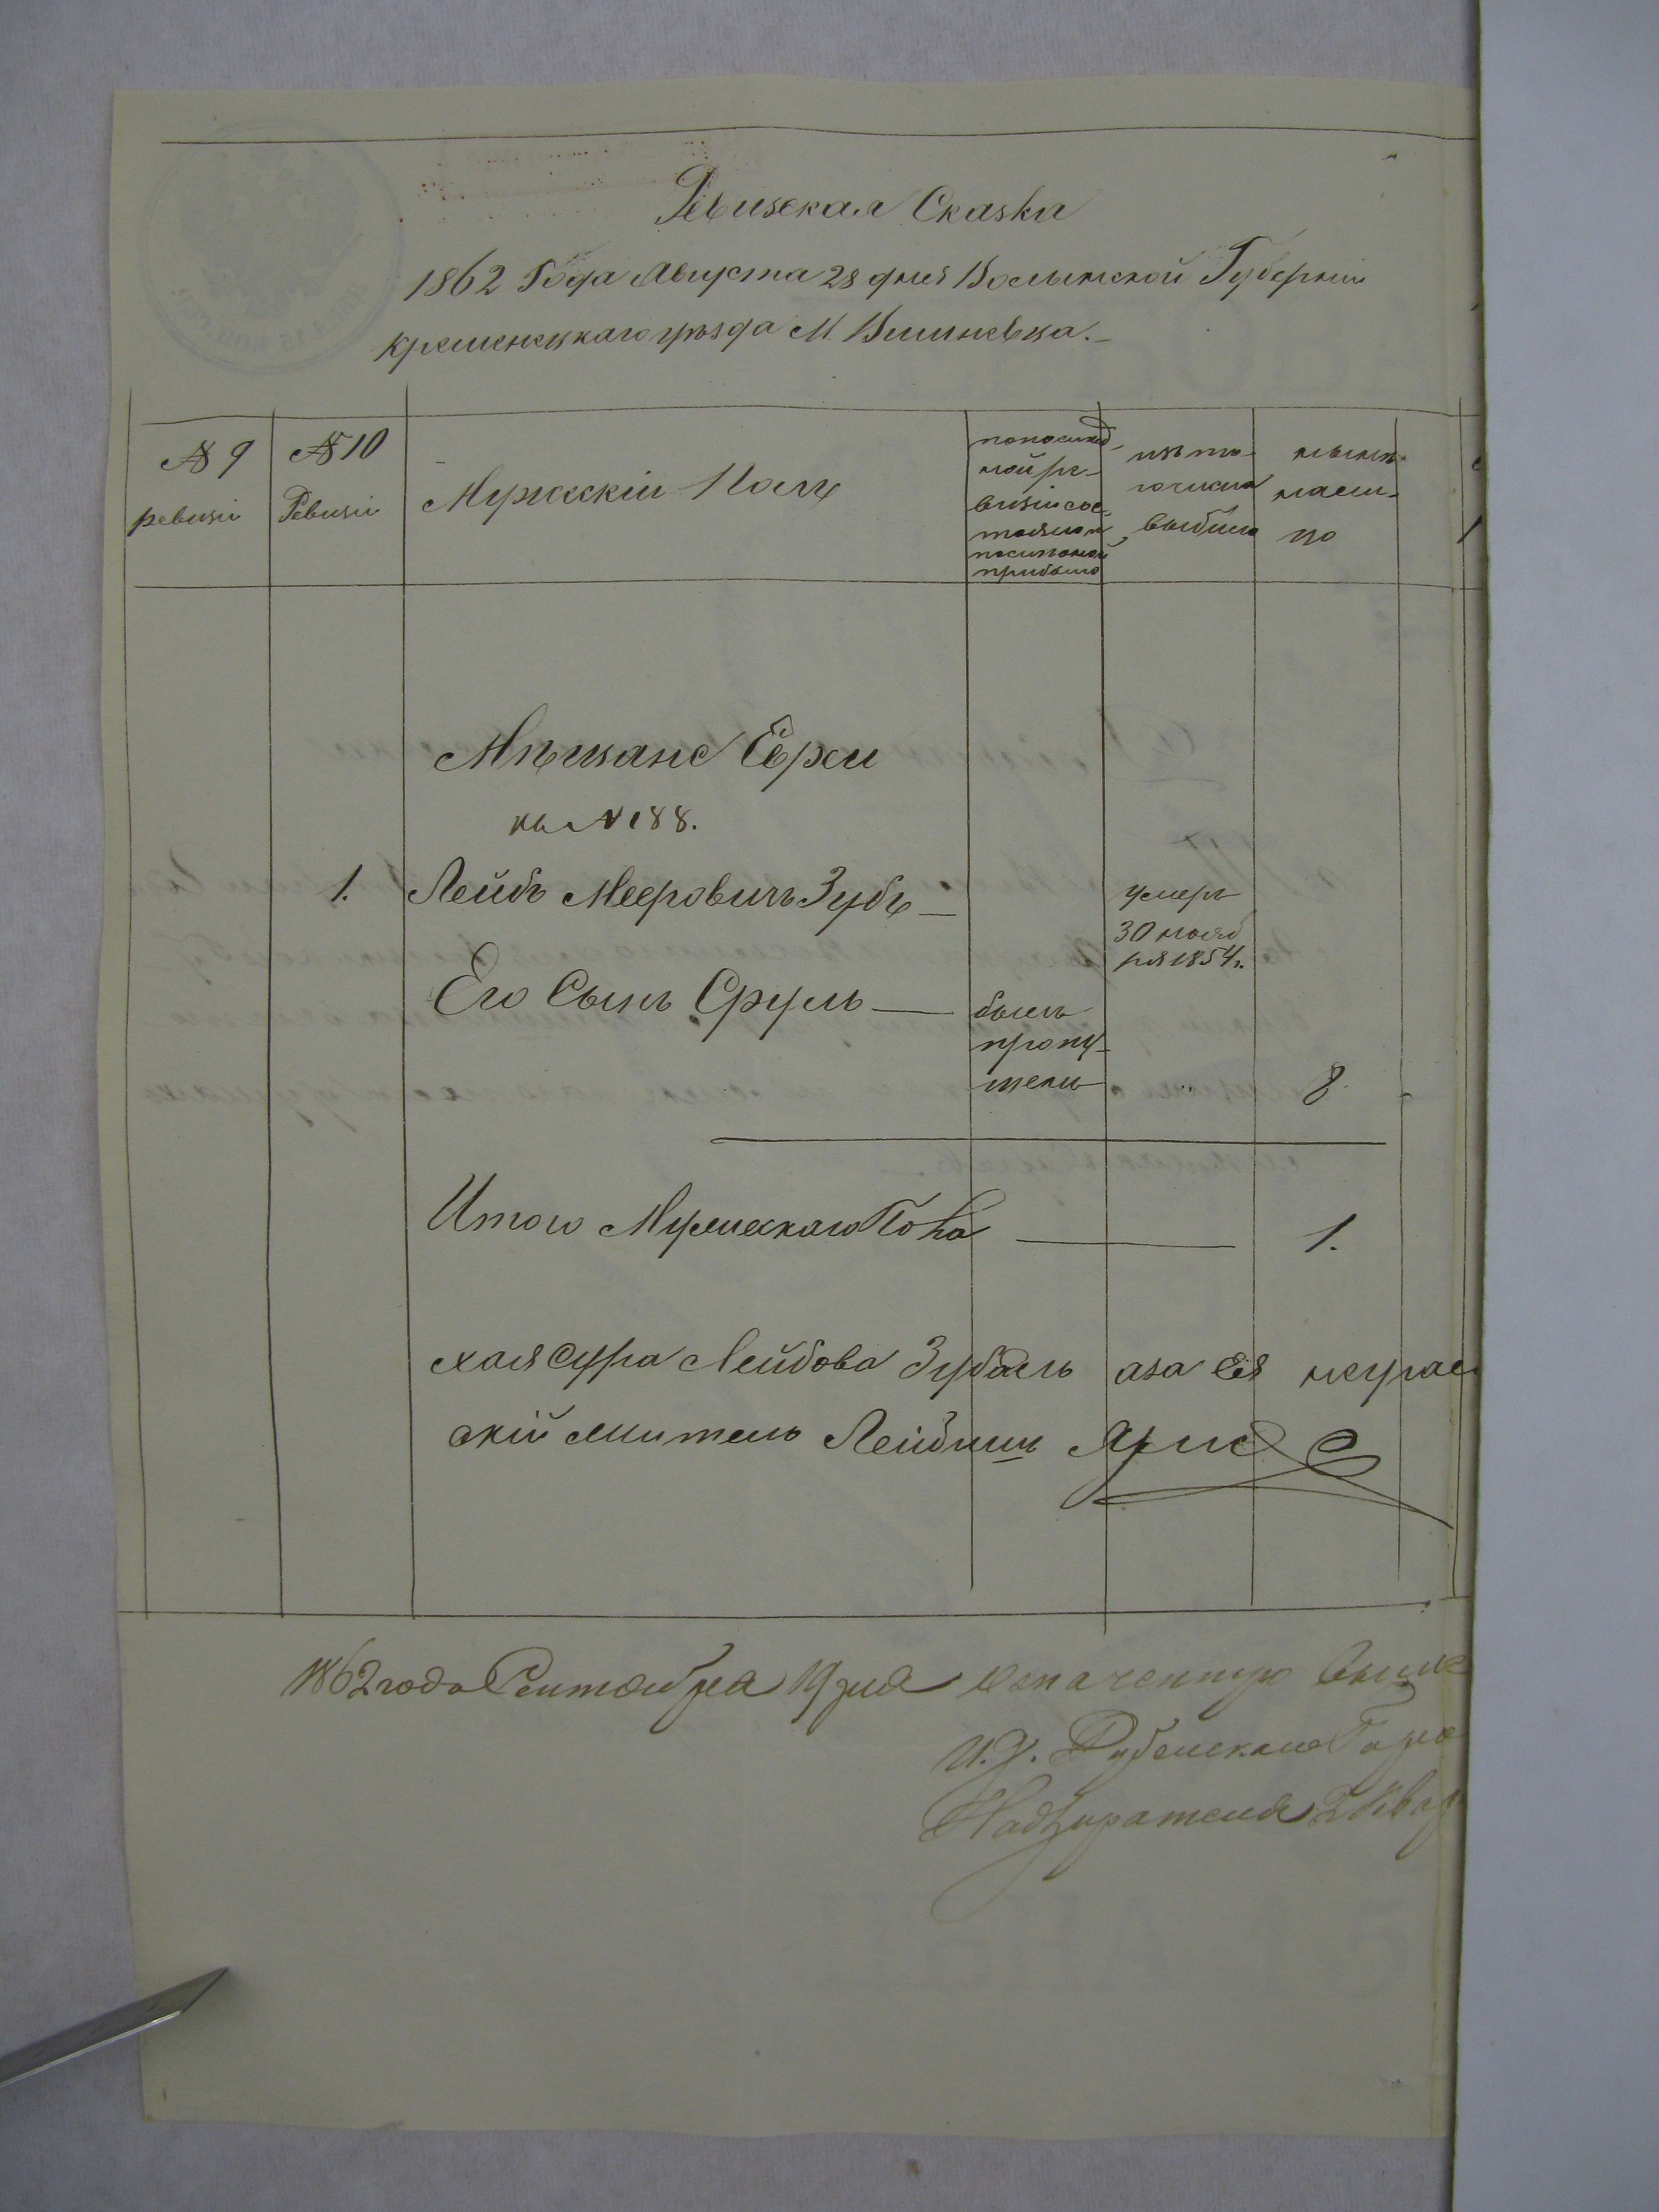 Ревизская Сказка
1862 Года Августа 28 дня Волынской Губерніи
Кременецкаго уѣзда М. Вишневца.
№ 9
ревизіи
№ 10
Ревизіи
Мужескій Полъ
по послѣд
ней ре-
визіи сос-
тояло и
прибыло
изъ то-
го числа
выбыло
нынѣ
на ли-
цо
Мѣщане Евреи
№ 188.
1. Лейбъ Мееровичъ Зубъ —
умеръ
30 нояб
ря 1854 г.
Его Сынъ Сруль —
былъ
пропу-
щенъ
8
Итого Мужескаго Пола — 1.
Хая Сура Лейбова Зубъ
скій житель Лейбишъ
1862 года Сентября 19 дня означенную
И. Д. Дубенскаго Горо
Надзирателя 2 Квар